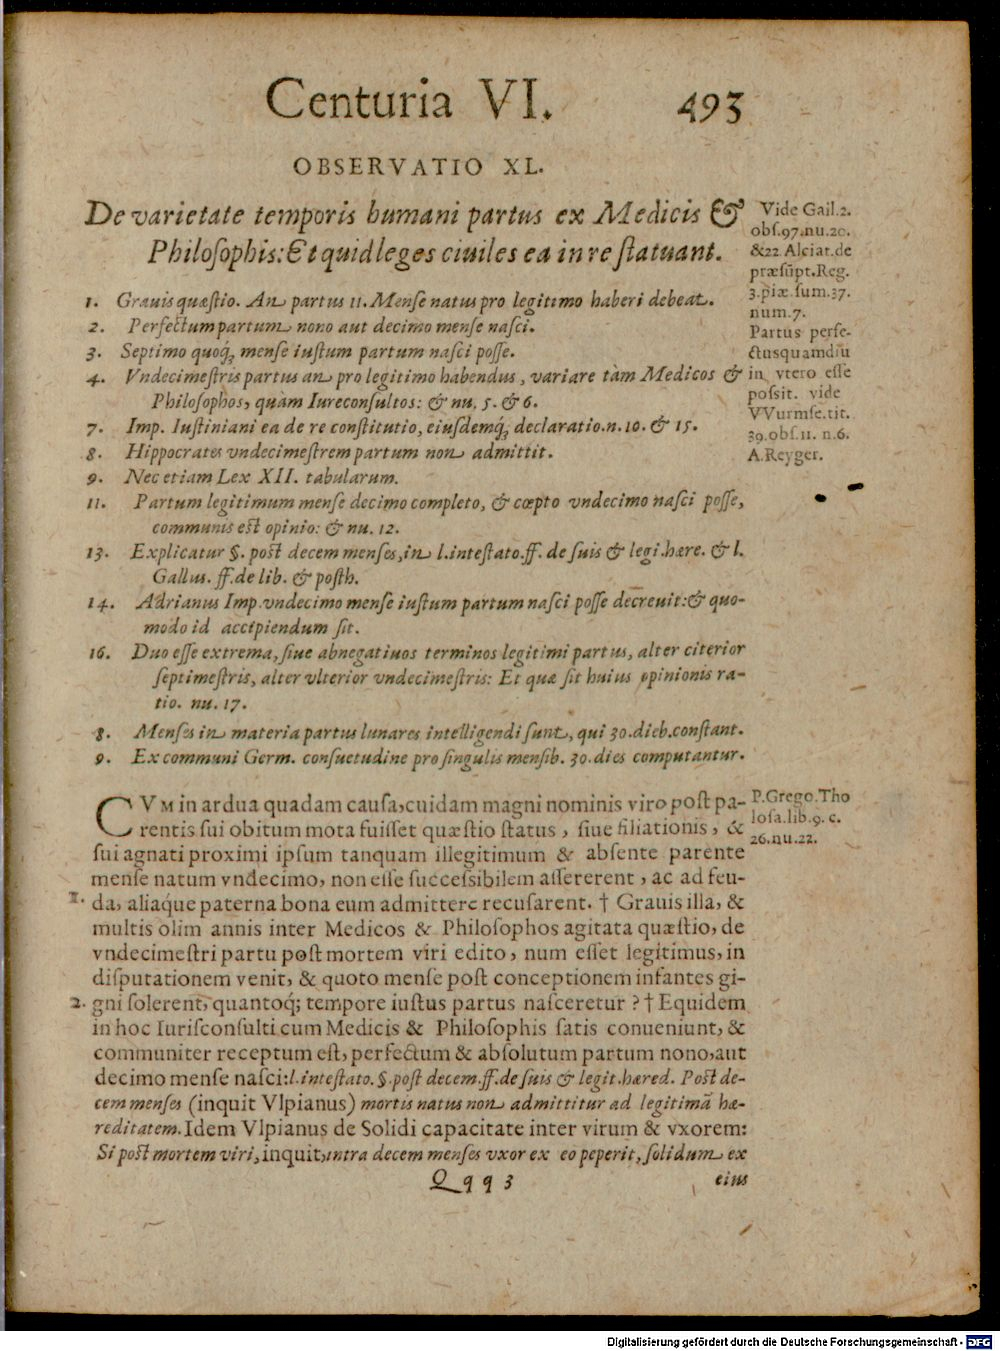 Centuria VI. 493
OBSERVATIO XL.
De varietate temporis humani partus ex Medicis &
Philosophis: Et quid leges ciuiles ea in re statuant.
Vide Gail. 2.
obs. 97. nu. 20.
& 22 Alciat. de
præsūpt. Reg.
3. piæ sum. 37.
num. 7.
Partus perfe-
ctus quamdiu
in vtero esse
possit. vide
VVurmse. tit.
39. obs. 11. n. 6.
A. Reyger.
1. Grauis quæstio. An partus 11. Mense natus pro legitimo haberi debeat.
2. Perfectum partum nono aut decimo mense nasci.
3. Septimo quoq; mense iustum partum nasci posse.
4. Vndecimestris partus an pro legitimo habendus, variare tàm Medicos &
Philosophos, quàm Iureconsultos: & nu. 5. & 6.
7. Imp. Iustiniani ea de re constitutio, eiusdemq; declaratio. n. 10. & 15.
8. Hippocrates vndecimestrem partum non admittit.
9. Nec etiam Lex XII. tabularum.
11. Partum legitimum mense decimo completo, & cœpto vndecimo nasci posse,
communis est opinio: & nu. 12.
13. Explicatur §. post decem menses, in l. intestato. ff. de suis & legi. hære. & l.
Gallus. ff. de lib. & posth.
14. Adrianus Imp. vndecimo mense iustum partum nasci posse decreuit: & quo-
modo id accipiendum sit.
16. Duo esse extrema, siue abnegatiuos terminos legitimi partus, alter citerior
septimestris, alter vlterior vndecimestris: Et quæ sit huius opinionis ra-
tio. nu. 17.
8. Menses in materia partus lunares intelligendi sunt, qui 30. dieb. constant.
9. Ex communi Germ. consuetudine pro singulis mensib. 30. dies computantur.
CVM in ardua quadam causa, cuidam magni nominis viro post pa-
rentis sui obitum mota fuisset quæstio status, siue filiationis, &
sui agnati proximi ipsum tanquam illegitimum & absente parente
mense natum vndecimo, non esse successibilem assererent, ac ad feu-
1. da, aliaque paterna bona eum admittere recusarent. † Grauis illa, &
multis olim annis inter Medicos & Philosophos agitata quæstio, de
vndecimestri partu post mortem viri edito, num esset legitimus, in
disputationem venit, & quoto mense post conceptionem infantes gi-
2. gni solerent, quantoq; tempore iustus partus nasceretur? † Equidem
in hoc Iurisconsulti cum Medicis & Philosophis satis conueniunt, &
communiter receptum est, perfectum & absolutum partum nono, aut
decimo mense nasci: l. intestato. §. post decem. ff. de suis & legit. hæred. Post de-
cem menses (inquit Vlpianus) mortis natus non admittitur ad legitimā hæ-
reditatem. Idem Vlpianus de Solidi capacitate inter virum & vxorem:
Si post mortem viri, inquit, intra decem menses vxor ex eo peperit, solidum ex
P. Grego. Tho
losa. lib. 9. c.
26. nu. 22.
Qqq 3 eius
Digitalisierung gefördert durch die Deutsche Forschungsgemeinschaft - DFG